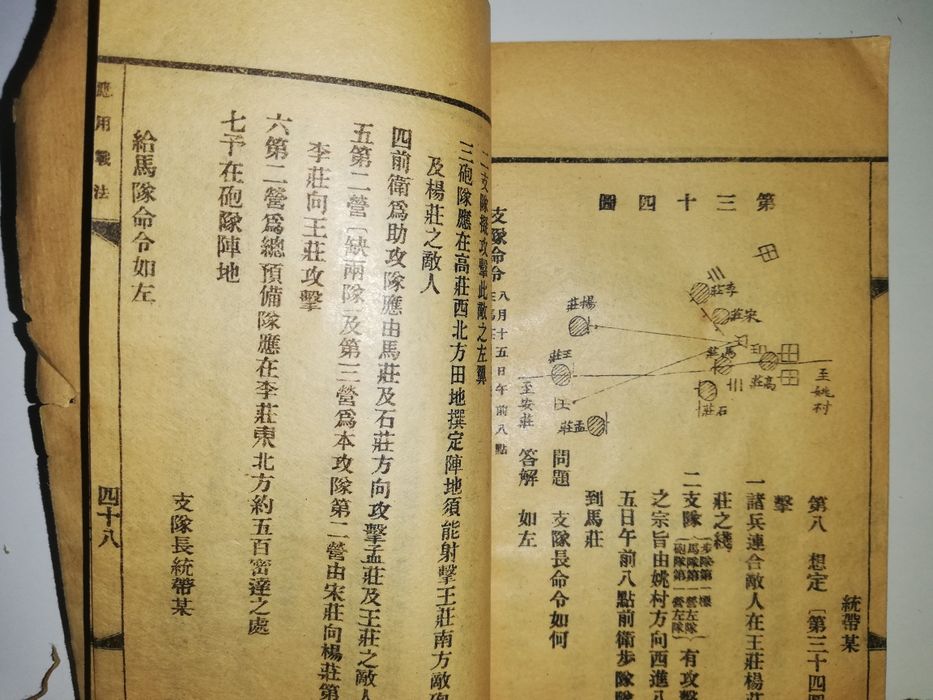 第三十四圖
李莊
宋莊
楊莊
馬莊
王莊
高莊
石莊
孟莊
至姚村
至安莊
統帶某
第八　想定　〔第三十四
擊
一諸兵連合敵人在王莊楊莊
莊之綫
二支隊（步隊第一標　馬隊第一營左隊　砲隊第一營左隊）有攻擊
之宗旨由姚村方向西進八
五日午前八點前衛步隊
到馬莊
問題　支隊長命令如何
答解　如左
支隊命令　八月十五日午前八點
二支隊擬攻擊此敵之左翼
三砲隊應在高莊西北方田地撰定陣地須能射擊王莊南方敵砲
及楊莊之敵人
四前衛爲助攻隊應由馬莊及石莊方向攻擊孟莊及王莊之敵人
五第二營〔缺兩隊〕及第三營爲本攻隊第二營由宋莊向楊莊第
李莊向王莊攻擊
六第二營爲總預備隊應在李莊東北方約五百密達之處
七予在砲隊陣地
支隊長統帶某
給馬隊命令如左
應用戰法
四十八